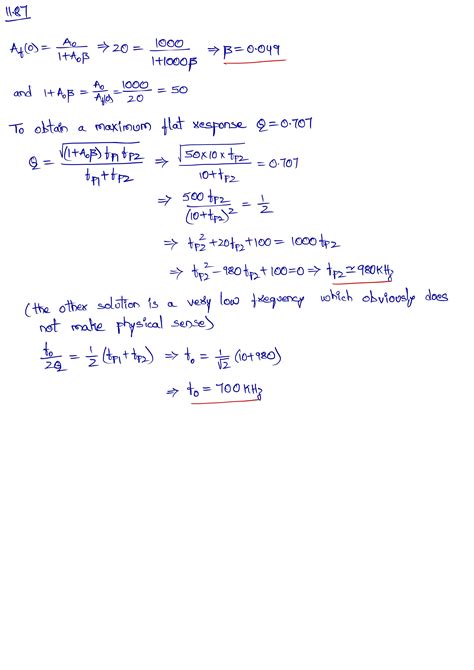 11.87
A_f(0) = A_0 / (1+A_0β) ⇒ 20 = 1000 / (1+1000β) ⇒ β = 0.049
and 1+A_0β = A_0 / A_f(0) = 1000 / 20 = 50
To obtain a maximum flat response Q = 0.707
Q = √((1+A_0β) f_P1 f_P2) / (f_P1 + f_P2) ⇒ √(50×10×f_P2) / (10+f_P2) = 0.707
⇒ 500 f_P2 / (10+f_P2)² = 1/2
⇒ f_P2² + 20f_P2 + 100 = 1000 f_P2
⇒ f_P2² - 980 f_P2 + 100 = 0 ⇒ f_P2 ≃ 980 KHz
(the other solution is a very low frequency which obviously does
not make physical sense)
f_0 / 2Q = 1/2 (f_P1 + f_P2) ⇒ f_0 = 1/√2 (10+980)
⇒ f_0 = 700 KHz